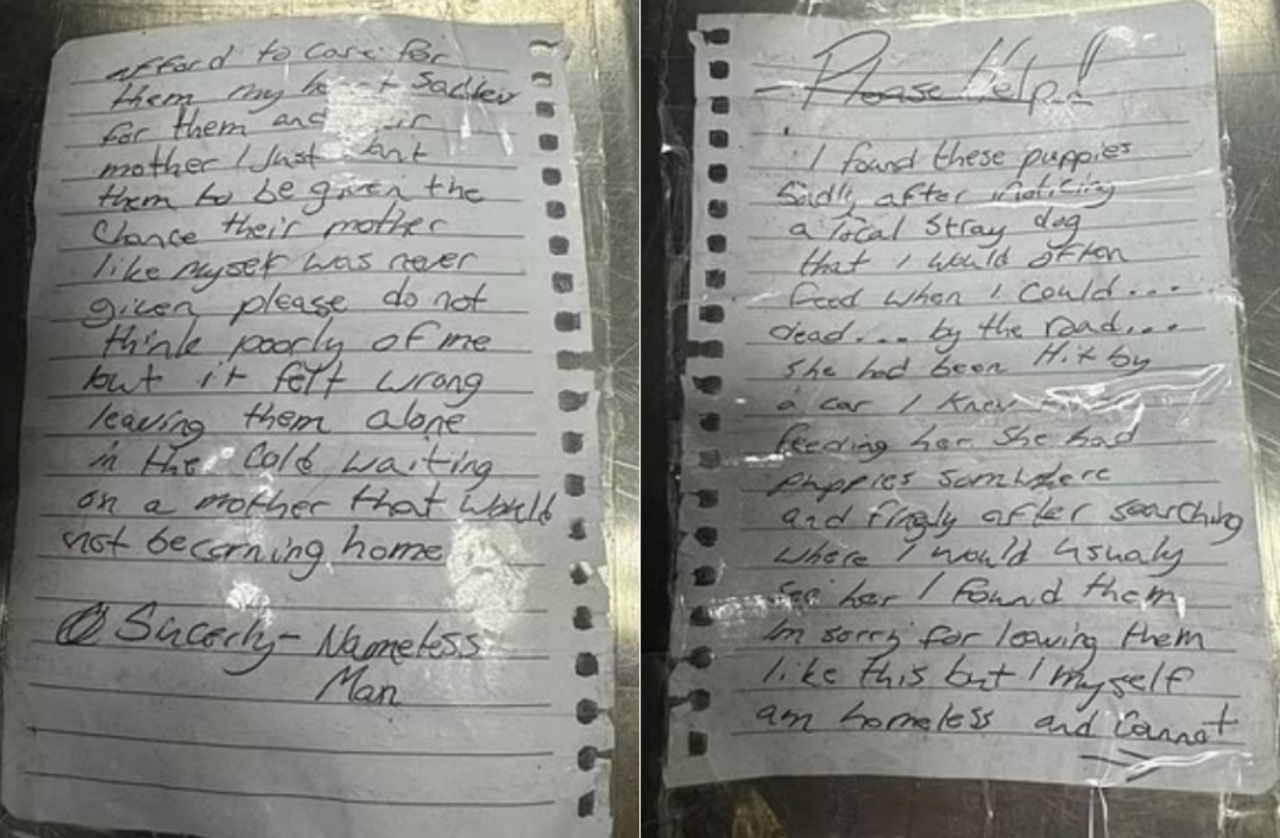 Please Help!
I found these puppies
Sadly after noticing
a local Stray dog
that I would often
feed when I could...
dead... by the road...
She had been Hit by
a car I knew
feeding her She had
puppies somwhere
and finaly after searching
where I would usualy
See her I found them
Im sorry for leaving them
like this but I myself
am homeless and cannot
afford to care for
them my
for them and
mother I Just
them to be given the
Chance their mother
like myself was never
given please do not
think poorly of me
but it felt wrong
leaving them alone
in the Cold waiting
on a mother that would
not be coming home
Sincerly - Nameless
Man